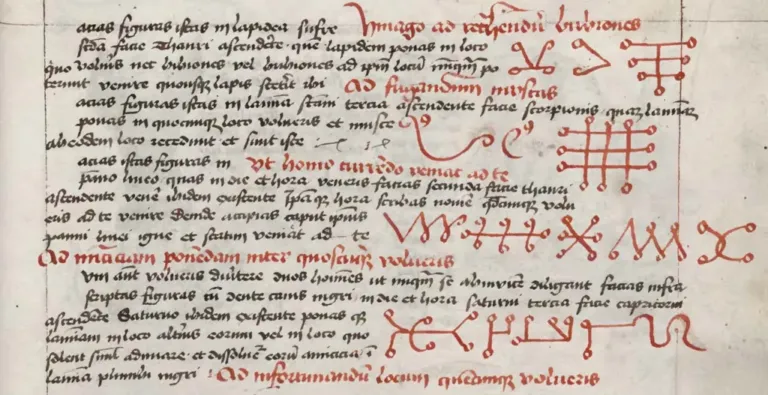 acias figuras istas in lapidea sufre Ymago ad retinendum bubiones
scda facie Thauri ascendente · quem lapidem ponas in loco
quo volueris nec bibiones vel bubiones ad ipm locu inqm po
terunt venire quousq lapis steterit ibi Ad fugandum muscas
acias figuras istas in lamina stani tercia ascendente facie scorpionis quam laminam
ponas in quocumq loco volueris et musce
ab eodem loco recedunt et sunt iste
acias istas figuras in Ut homo currendo veniat ad te
panno lineo quas in die et hora veneris facias secunda facie thauri
ascendente venere ibidem existente Ipa q hora scribas nome volu
eris ad te venire Deinde accipias caput ipius
panni linei igne et statim veniat ad te
Ad inimiciciam ponendam inter quoscumq volueris
um aut volueris divertere duos homines ut inqm se abinvice diligant facias infra
scriptas figuras cu dente canis nigri in die et hora saturni tercia facie capricorni
ascendente Saturno ibidem existente ponas q
laminam in loco alterius eorum vel in loco quo
solent simul adinvare et dissolvent eoru amicicia i
lamina plumbi nigri : Ad infortunandum locum quecumq volueris